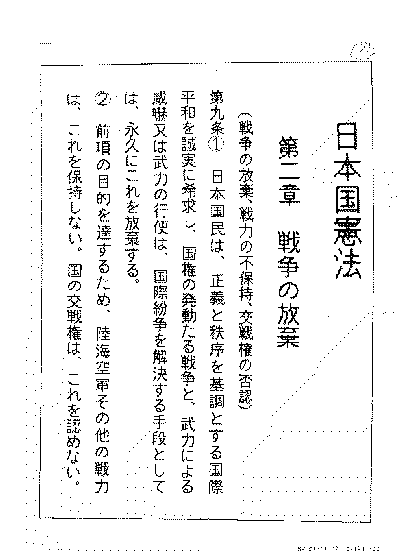 日本国憲法
第二章 戦争の放棄
(戦争の放棄、戦力の不保持、交戦権の否認)
第九条① 日本国民は、正義と秩序を基調とする国際
平和を誠実に希求し、国権の発動たる戦争と、武力による
威嚇又は武力の行使は、国際紛争を解決する手段として
は、永久にこれを放棄する。
② 前項の目的を達するため、陸海空軍その他の戦力
は、これを保持しない。国の交戦権は、これを認めない。